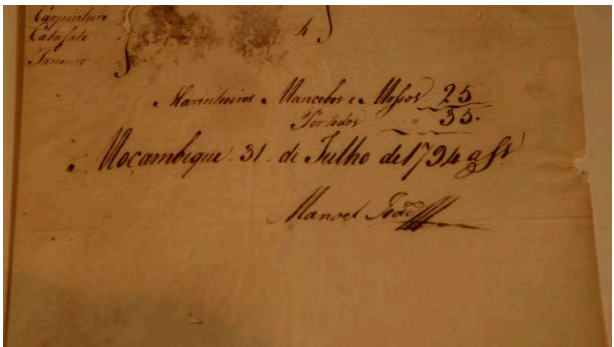 Carpinteiro
Calafate
Tanoeiro
4
Marinheiros Mancebos e Mossos 25
Por todos 35.
Moçambique 31 de Julho de 1794 a
Manoel